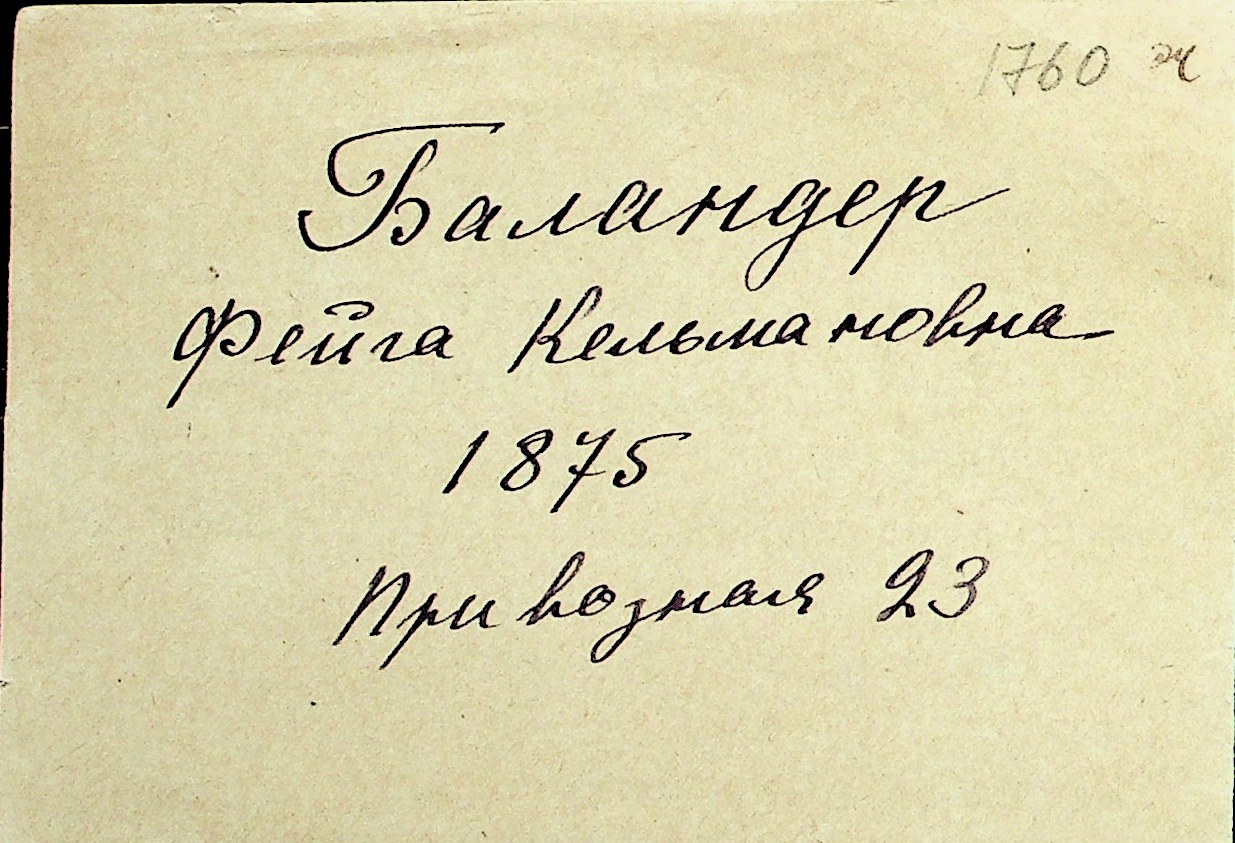 1760 ж
Баландер
Фейга Кельмановна
1875
Привозная 23